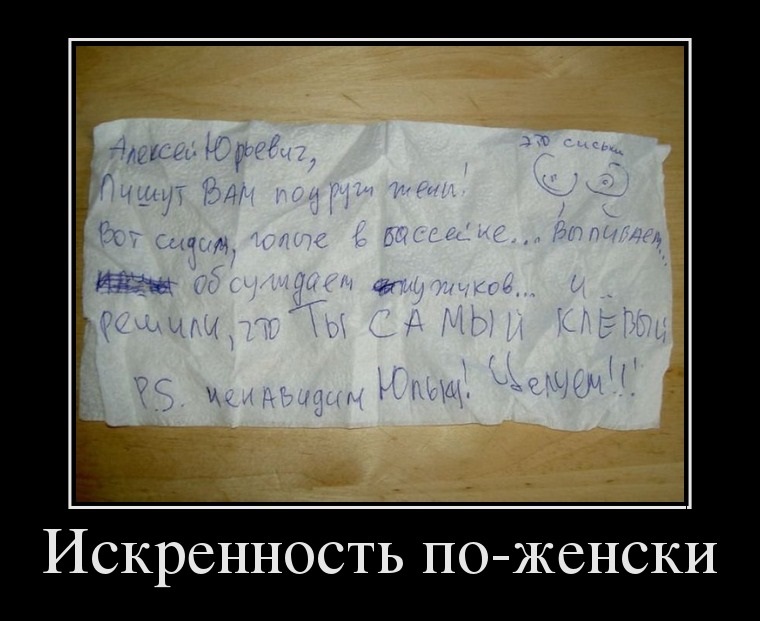 Алексей Юрьевич,
это сиськи
Пишут ВАМ подруги жены!
Вот сидим, голые в бассейне... Выпиваем...
обсуждаем мужчков... и..
решили, что Ты САМЫЙ КЛЁВЫЙ
P.S. ненавидим Юльку! Целуем!!!
Искренность по-женски